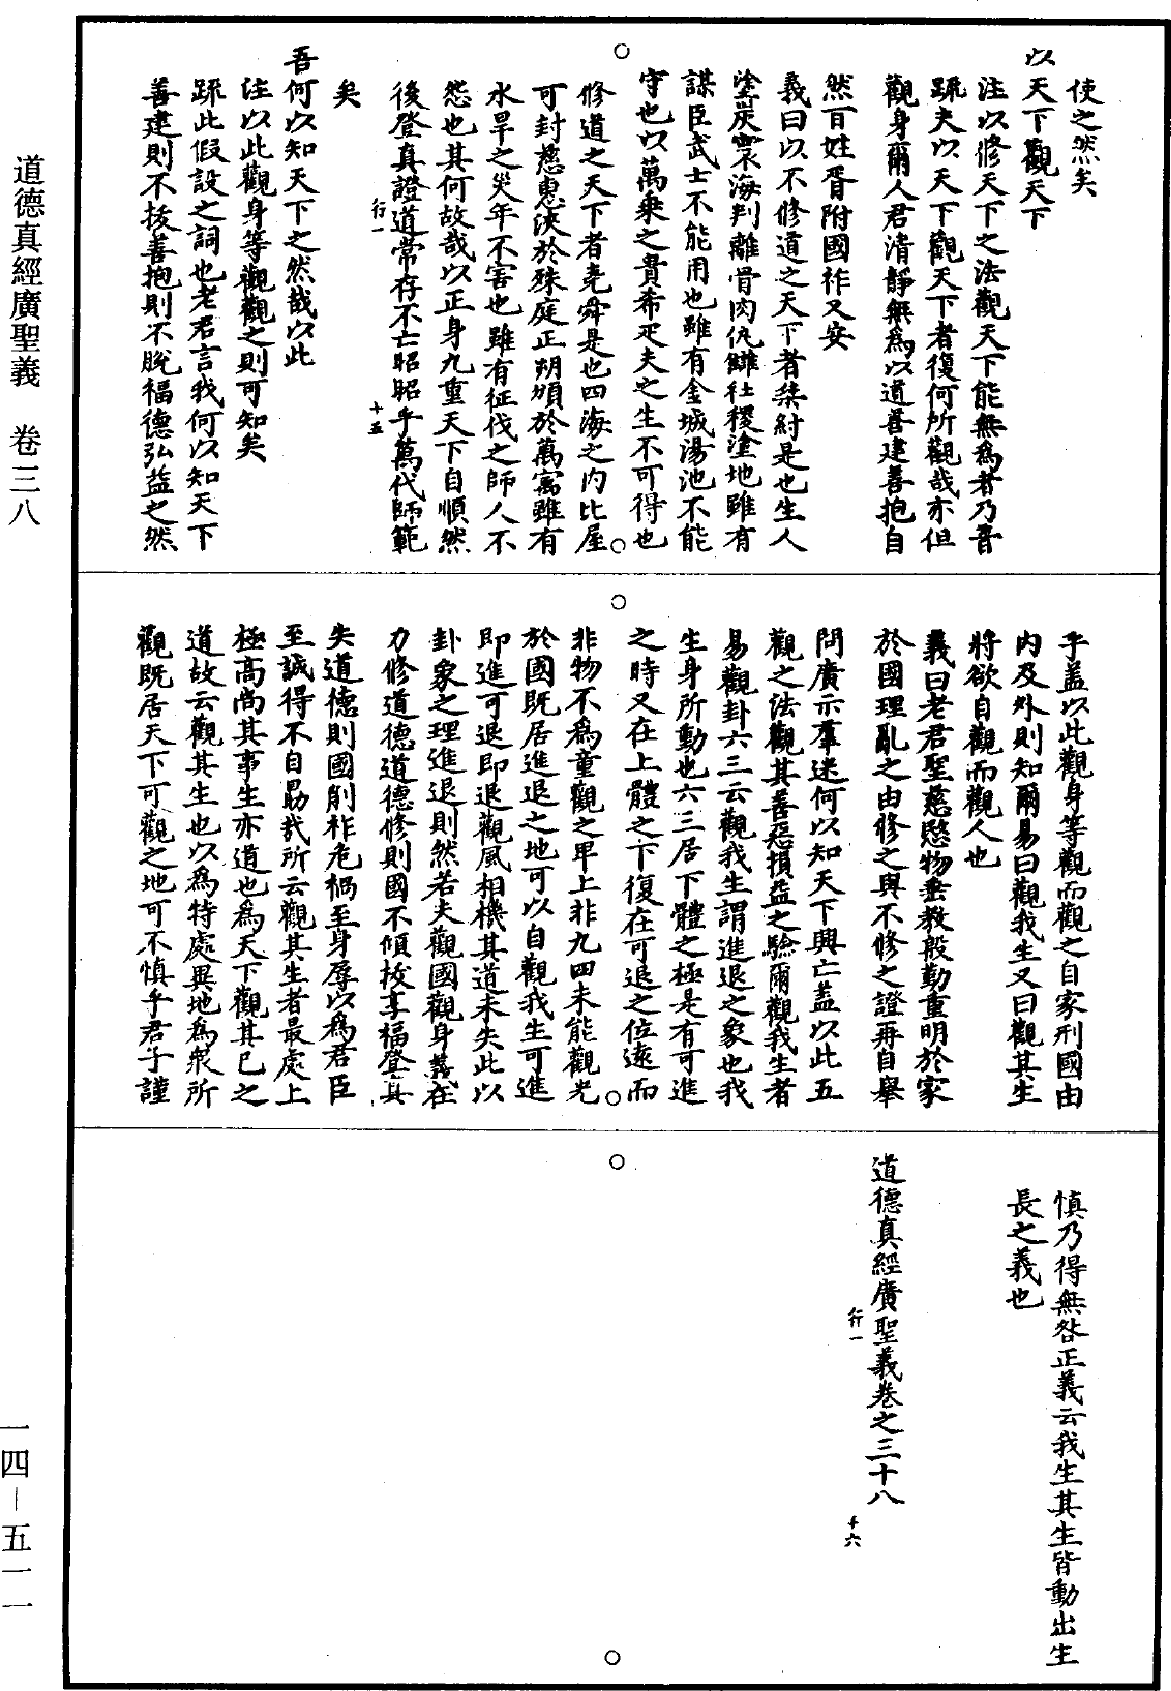 使之然矣
以天下觀天下
注以修天下之法觀天下能無爲者乃晉
疏夫以天下觀天下者復何所觀哉亦但
觀身爾人君清靜無爲以道善建善抱自
然百姓胥附國祚乂安
義曰以不修道之天下者桀紂是也生人
塗炭寰海判離骨肉仇讎社稷塗地雖有
謀臣武士不能用也雖有金城湯池不能
守也以萬乘之貴希疋夫之生不可得也
修道之天下者堯舜是也四海之内比屋
可封慈惠浹於殊庭正朔頒於萬寓雖有
水旱之災年不害也雖有征伐之師人不
怨也其何故哉以正身九重天下自順然
後登真證道常存不亡昭昭乎萬代師範
行一
十五
矣
吾何以知天下之然哉以此
注以此觀身等觀觀之則可知矣
疏此假設之詞也老君言我何以知天下
善建則不拔善抱則不脫福德弘益之然
乎盖以此觀身等觀而觀之自家刑國由
内及外則知爾易曰觀我生又曰觀其生
將欲自觀而觀人也
義曰老君聖慈愍物垂教殷勤重明於家
於國理亂之由修之與不修之證再自舉
問廣示羣迷何以知天下興亡盖以此五
觀之法觀其善惡損益之驗爾觀我生者
易觀卦六三云觀我生謂進退之象也我
生身所動也六三居下體之極是有可進
之時又在上體之下復在可退之位遠而
非物不爲童觀之卑上非九四未能觀光
於國既居進退之地可以自觀我生可進
即進可退即退觀風相機其道未失此以
卦象之理進退則然若夫觀國觀身義在
力修道德道德修則國不傾拔享福登真
失道德則國削祚危禍至身辱以爲君臣
至誠得不自勗哉所云觀其生者最處上
極高尚其事生亦道也爲天下觀其已之
道故云觀其生也以爲特處異地爲衆所
觀既居天下可觀之地可不慎乎君子謹
慎乃得無咎正義云我生其生皆動出生
長之義也
道德真經廣聖義卷之三十八
行一
十六
道德真經廣聖義 卷三八
一四－五一一